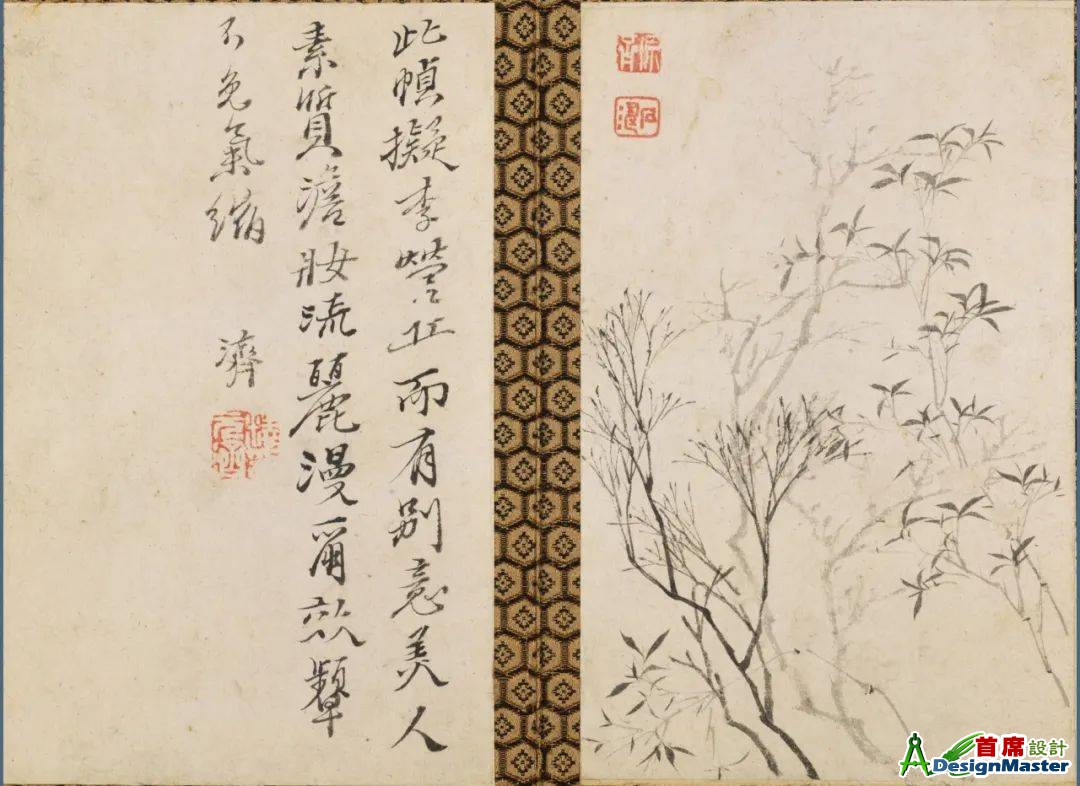 此幀擬李營丘而有別意美人
素質澹妝流麗漫爾效顰
不免氣縮
濟
首席設計
ADesignMaster